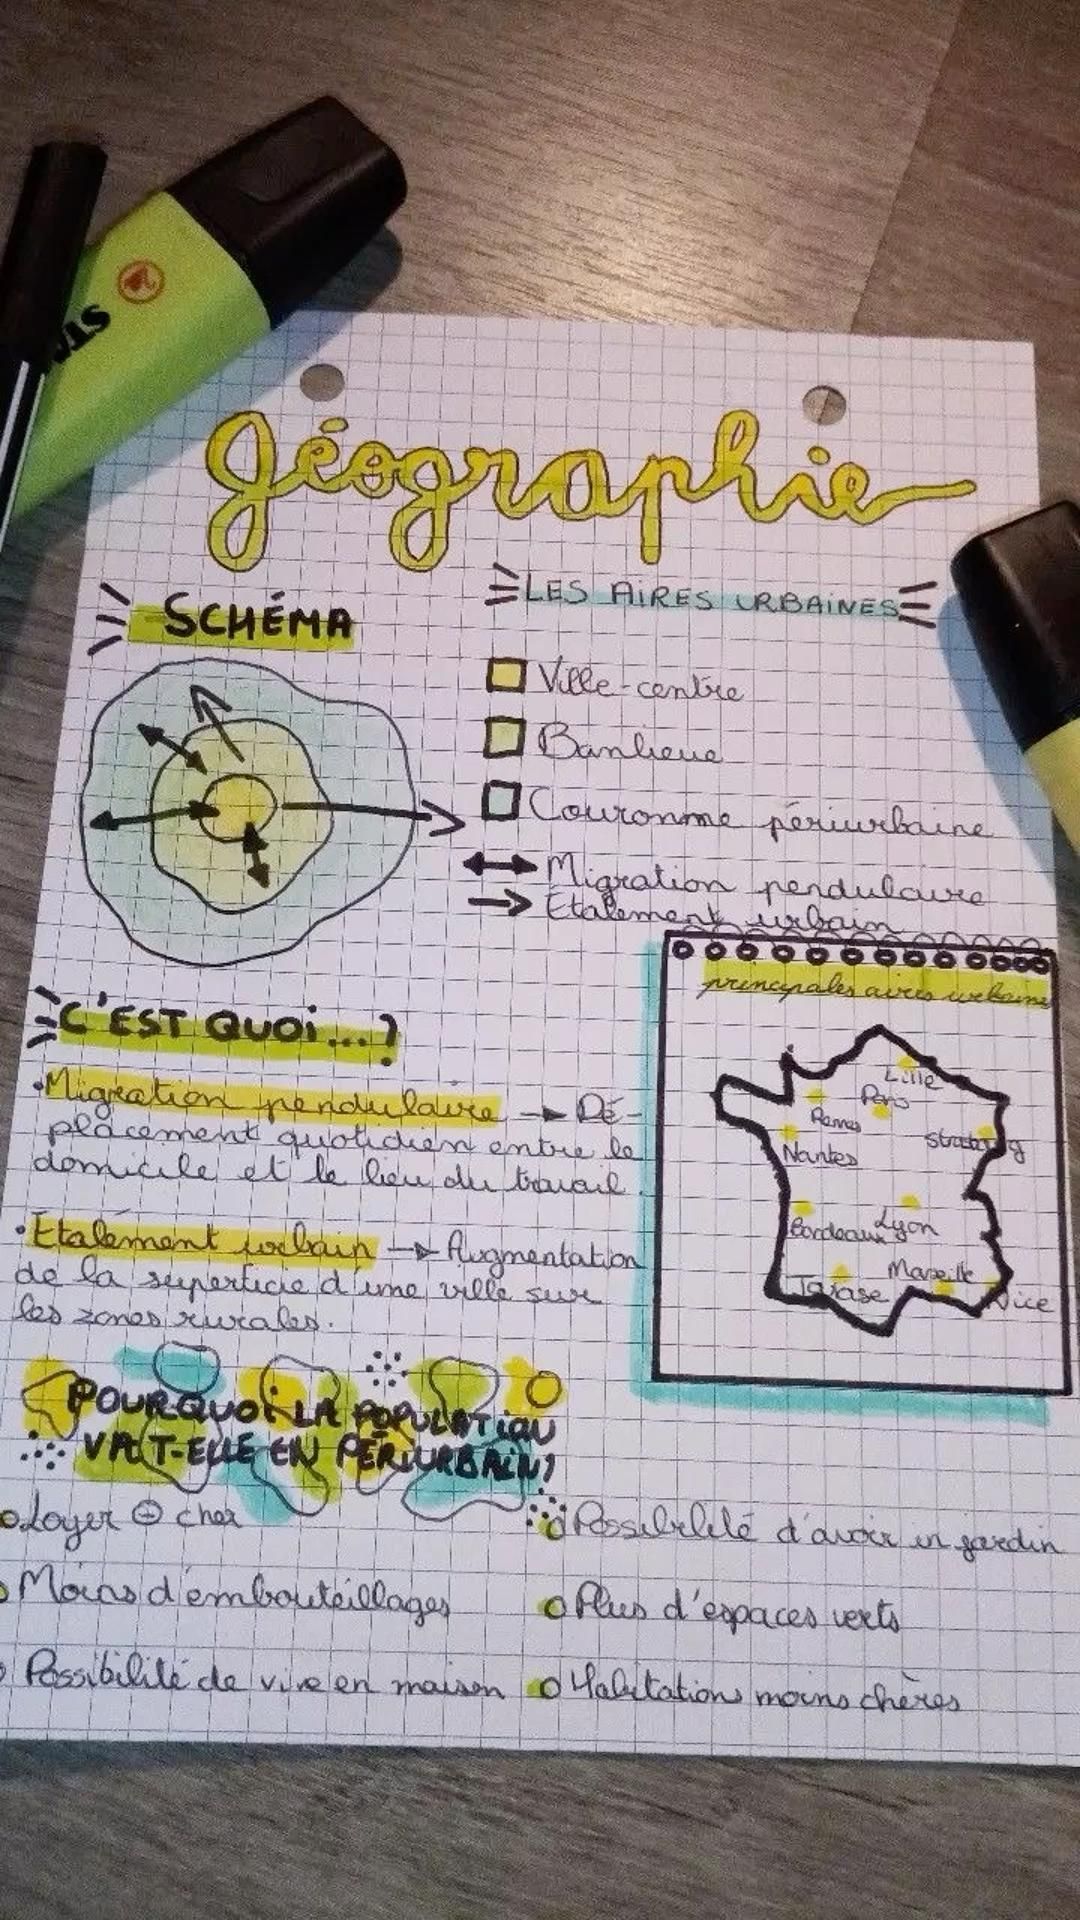 géographie
SCHÉMA
LES AIRES URBAINES
Ville-centre
Banlieue
Couronne périurbaine
Migration pendulaire
Etalement urbain
principales aires urbaine
Lille
Paris
Rennes
strasbourg
Nantes
Bordeaux
Lyon
Marseille
Nice
C'EST QUOi...?
• Migration pendulaire → Dé-
placement quotidien entre le
domicile et le lieu du travail.
• Etalement urbain → Augmentation
de la superficie d'une ville sur
les zones rurales.
POURQUOi LA POPULATiON
VA T-ELLE EN PÉRiURBAiN?
Loyer ⊖ cher
Moins d'embouteillages
Possibilité de vivre en maison
Possibilité d'avoir un jardin
Plus d'espaces verts
Habitations moins chères